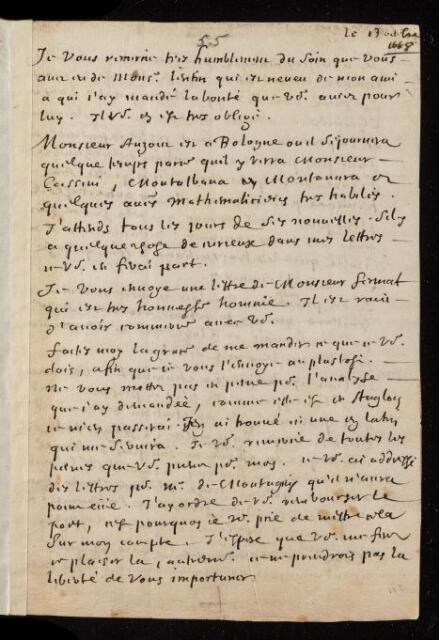 le 13 octobre
1668
55
Je vous remercie tres humblement du soin que vous
aues eu de Monsr. qui est neueu de mon ami
a qui i'ay mandé la bonté que vo. auies pour
luy. Il vo. en est tres obligé.
Monsieur Auzout est a Bologne ou il sejournera
quelque temps parce qu'il y verra Monsieur
Cassini, Montalbana et Montanara et
quelques autres Mathematiciens tres habiles.
J'attends tous les jours de ses nouuelles. S'il y
a quelque chose de curieux dans mes lettres
ie vo. en ferai part.
Je vous enuoye une lettre de Monsieur fermat
qui est tres honneste homme. Il est raui
d'auoir commerce auec vo.
faites moy la grace de me mander ce que ie vo.
dois, afin que ie vous l'enuoye au plustost.
Ne vous mettes pas en peine pr. l'analyse
que i'ay demandée, comme elle est en Anglois
ie m'en passerai. J'en ai trouué ici une en latin
qui me seruira. Je vo. remercie de toutes les
peines que vo. prenes pr. moy. ie vo. ai addressé
des lettres pr. Mr. de Montagny qu'il n'aura
point eüe. J'ay ordre de vo. rembourser le
port, c'est pourquoy ie vo. prie de mettre cela
sur mon compte. J'espere que vo. me feres
ce plaisir la, autrement ie ne prendrois pas la
liberté de vous importuner